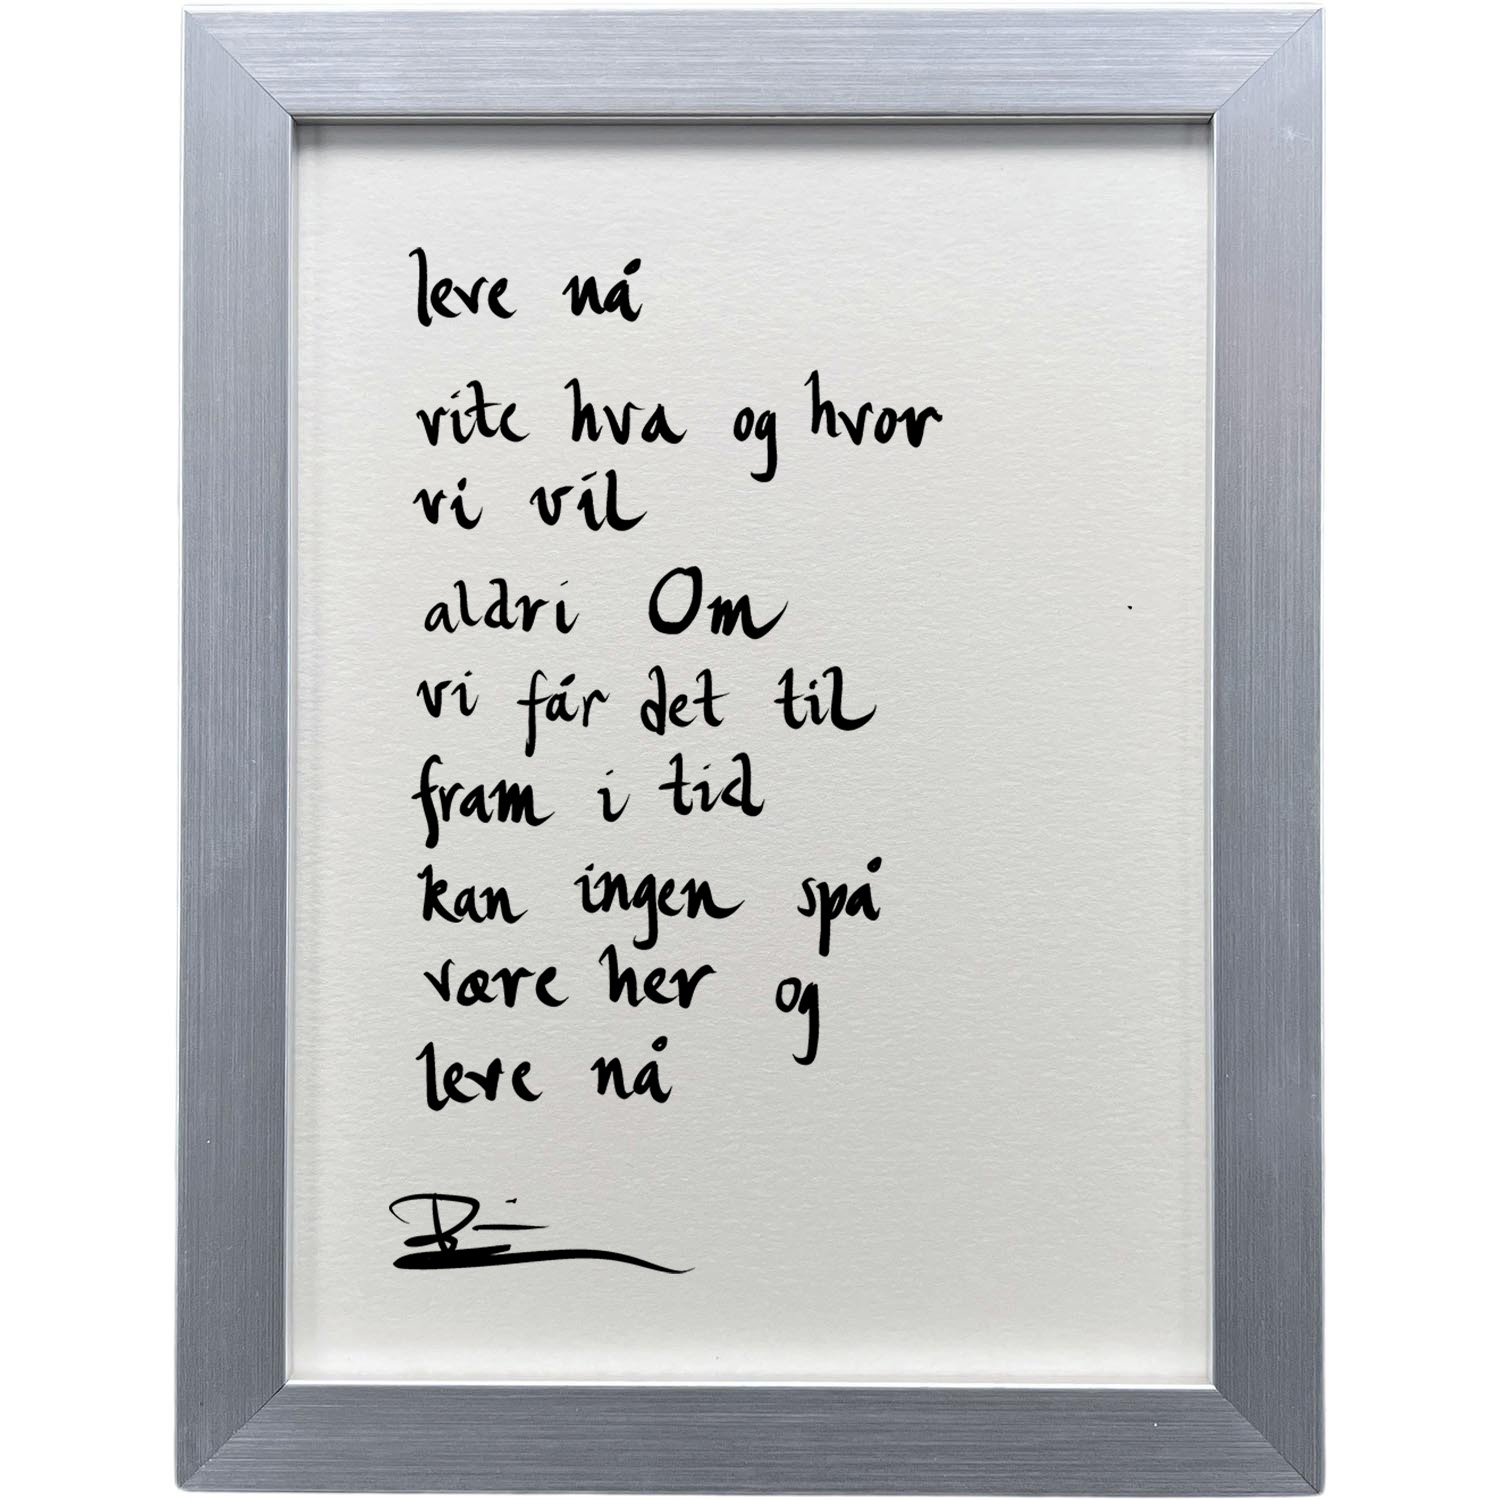 leve nå
vite hva og hvor
vi vil
aldri Om
vi får det til
fram i tid
kan ingen spå
være her og
leve nå